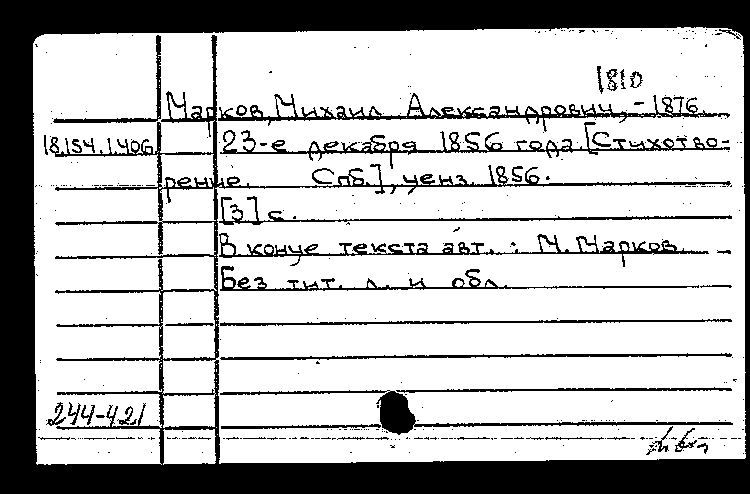 1810
Марков, Михаил Александрович, -1876.
18.154.1.406. 23-е декабря 1856 года. [Стихотво-
рение. Спб.], ценз. 1856.
[3] с.
В конце текста авт.: М. Марков.
Без тит. л. и обл.
244-421